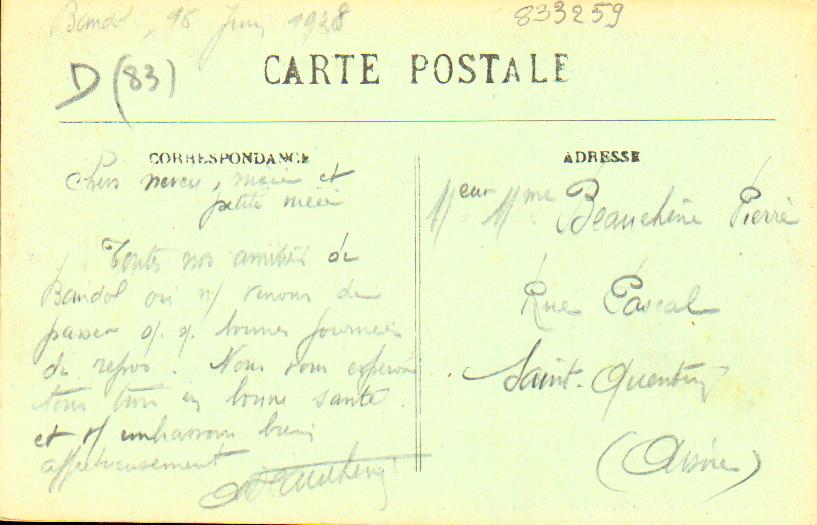 Bandol, 16 Juin 1928
833259
D (83)
CARTE POSTALE
CORRESPONDANCE
Chers neveu, nièce et
petite nièce
Toutes nos amitiés de
Bandol où n/ venons de
passer q. q. bonnes journées
de repos. Nous vous espérons
tous trois en bonne santé
et v/ embrassons bien
affectueusement
ADRESSE
Meur Mme Beauchêne Pierre
Rue Pascal
Saint-Quentin
(Aisne)